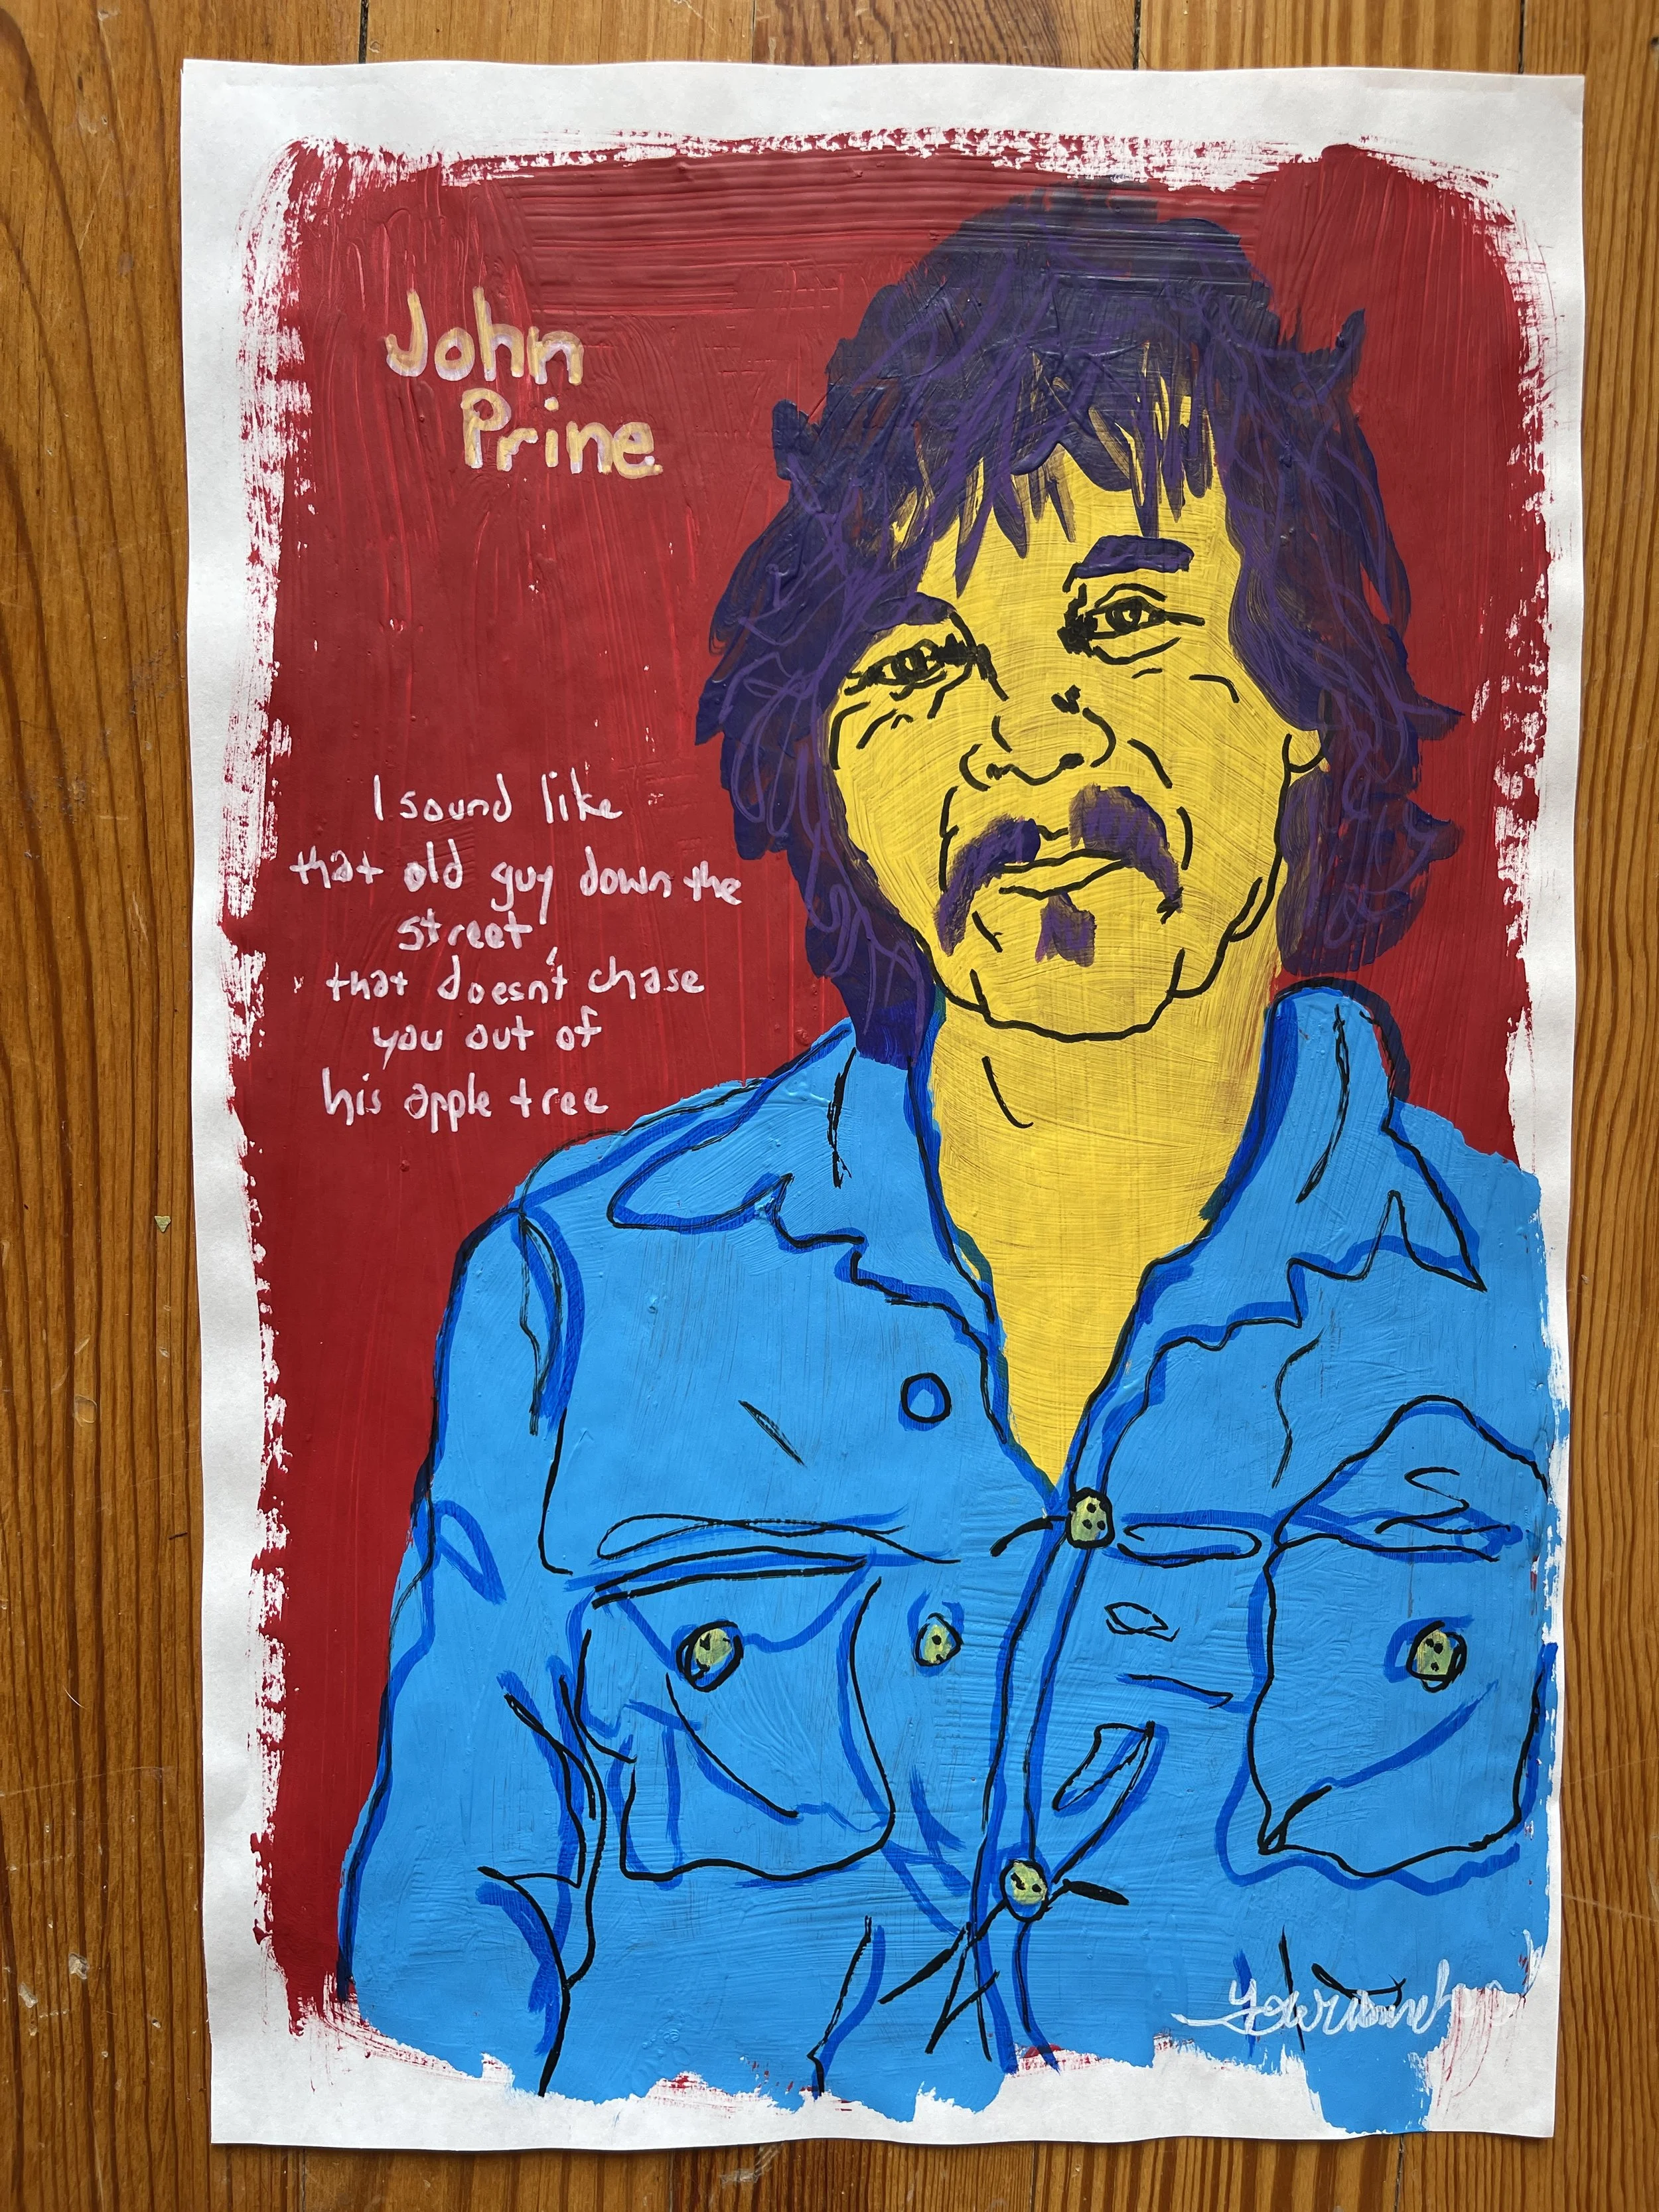 John
Prine
I sound like
that old guy down the
street
that doesn't chase
you out of
his apple tree